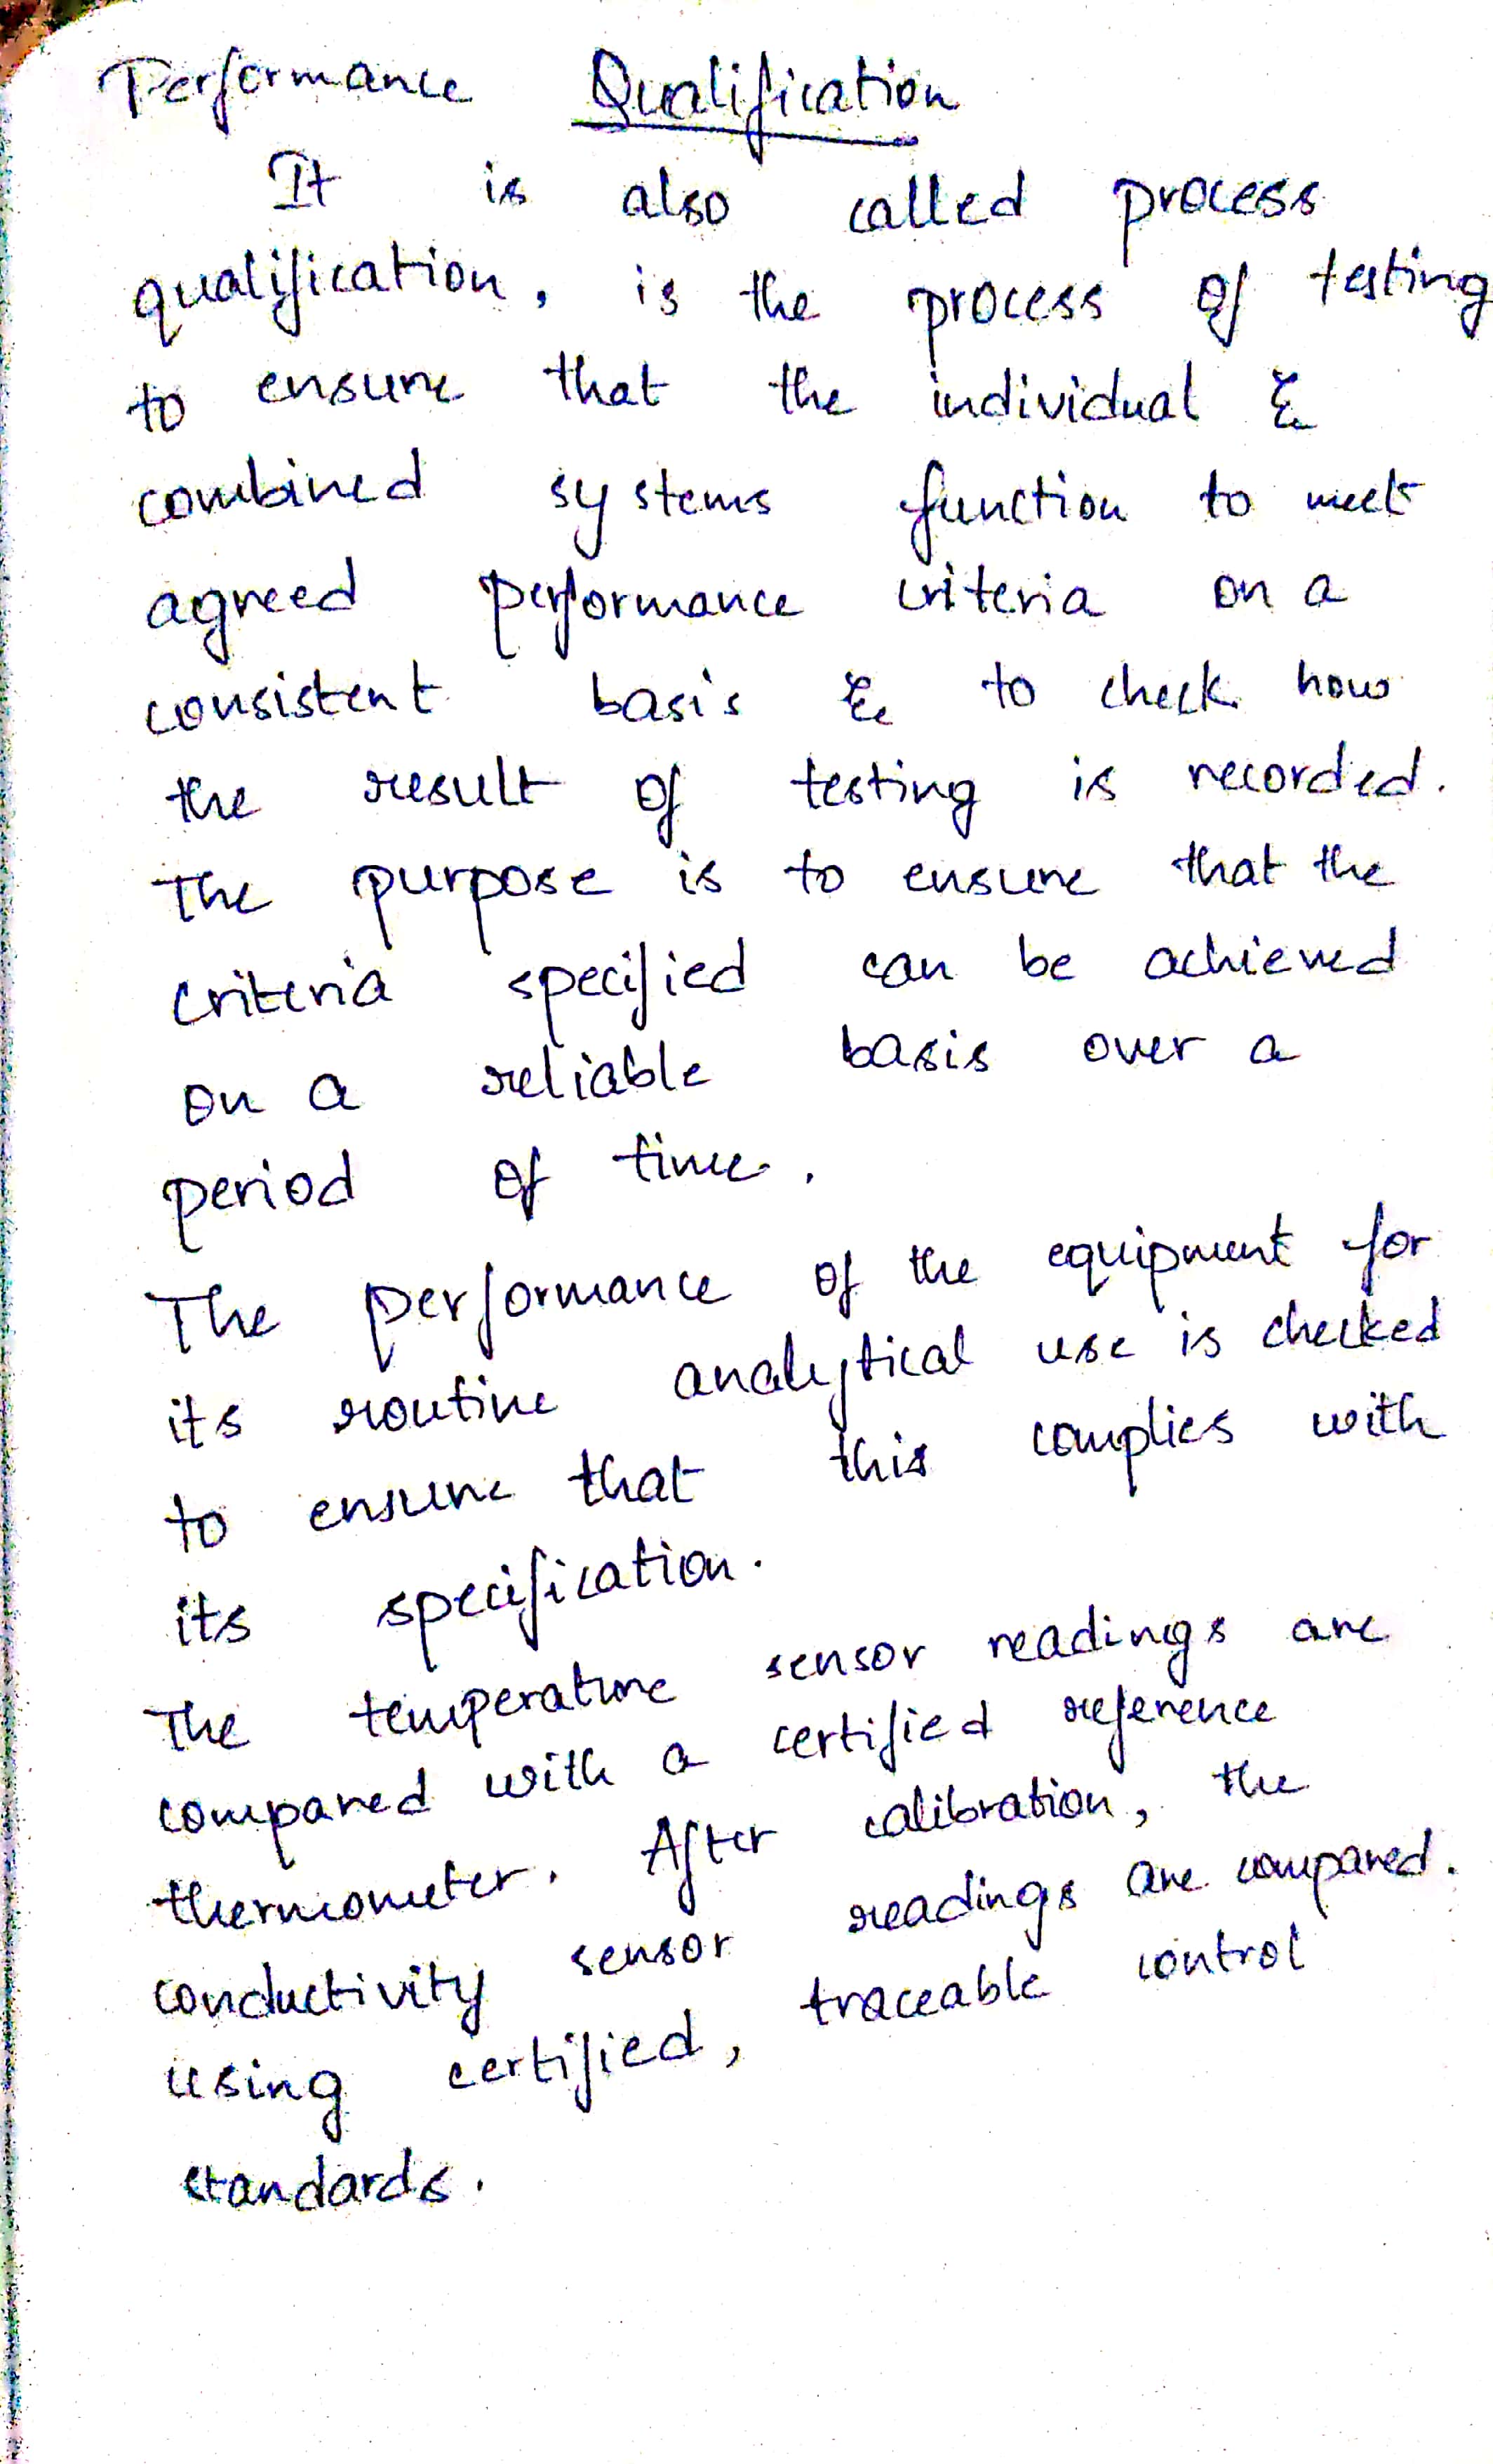 Performance Qualification
It is also called process
qualification, is the process of testing
to ensure that the individual &
combined systems function to meet
agreed performance criteria on a
consistent basis & to check how
the result of testing is recorded.
The purpose is to ensure that the
criteria specified can be achieved
on a reliable basis over a
period of time.
The performance of the equipment for
its routine analytical use is checked
to ensure that this complies with
its specification.
The temperature sensor readings are
compared with a certified reference
thermometer. After calibration, the
conductivity sensor readings are compared.
using certified, traceable control
standards.